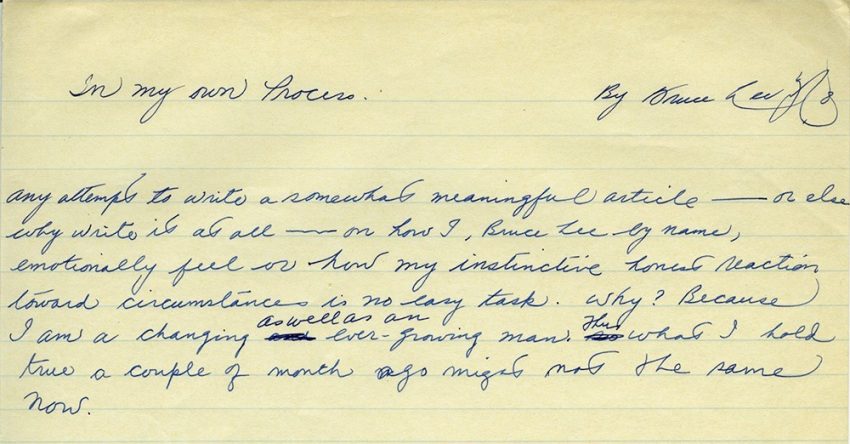 In my own Process. By Bruce Lee
any attempt to write a somewhat meaningful article — or else
why write it at all — on how I, Bruce Lee by name,
emotionally feel or how my instinctive honest reaction
toward circumstances is no easy task. Why? Because
I am a changing as well as an ever-growing man. Thus what I hold
true a couple of month ago might not the same
now.